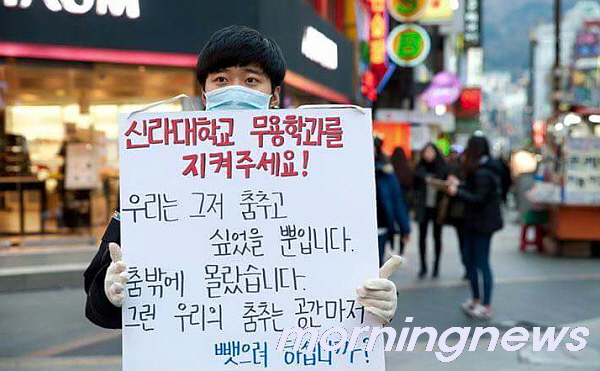 신라대학교 무용학과를
지켜주세요!
우리는 그저 춤추고
싶었을 뿐입니다.
춤밖에 몰랐습니다.
그런 우리의 춤추는 공간마저
뺏으려 하십니까?!
morningnews